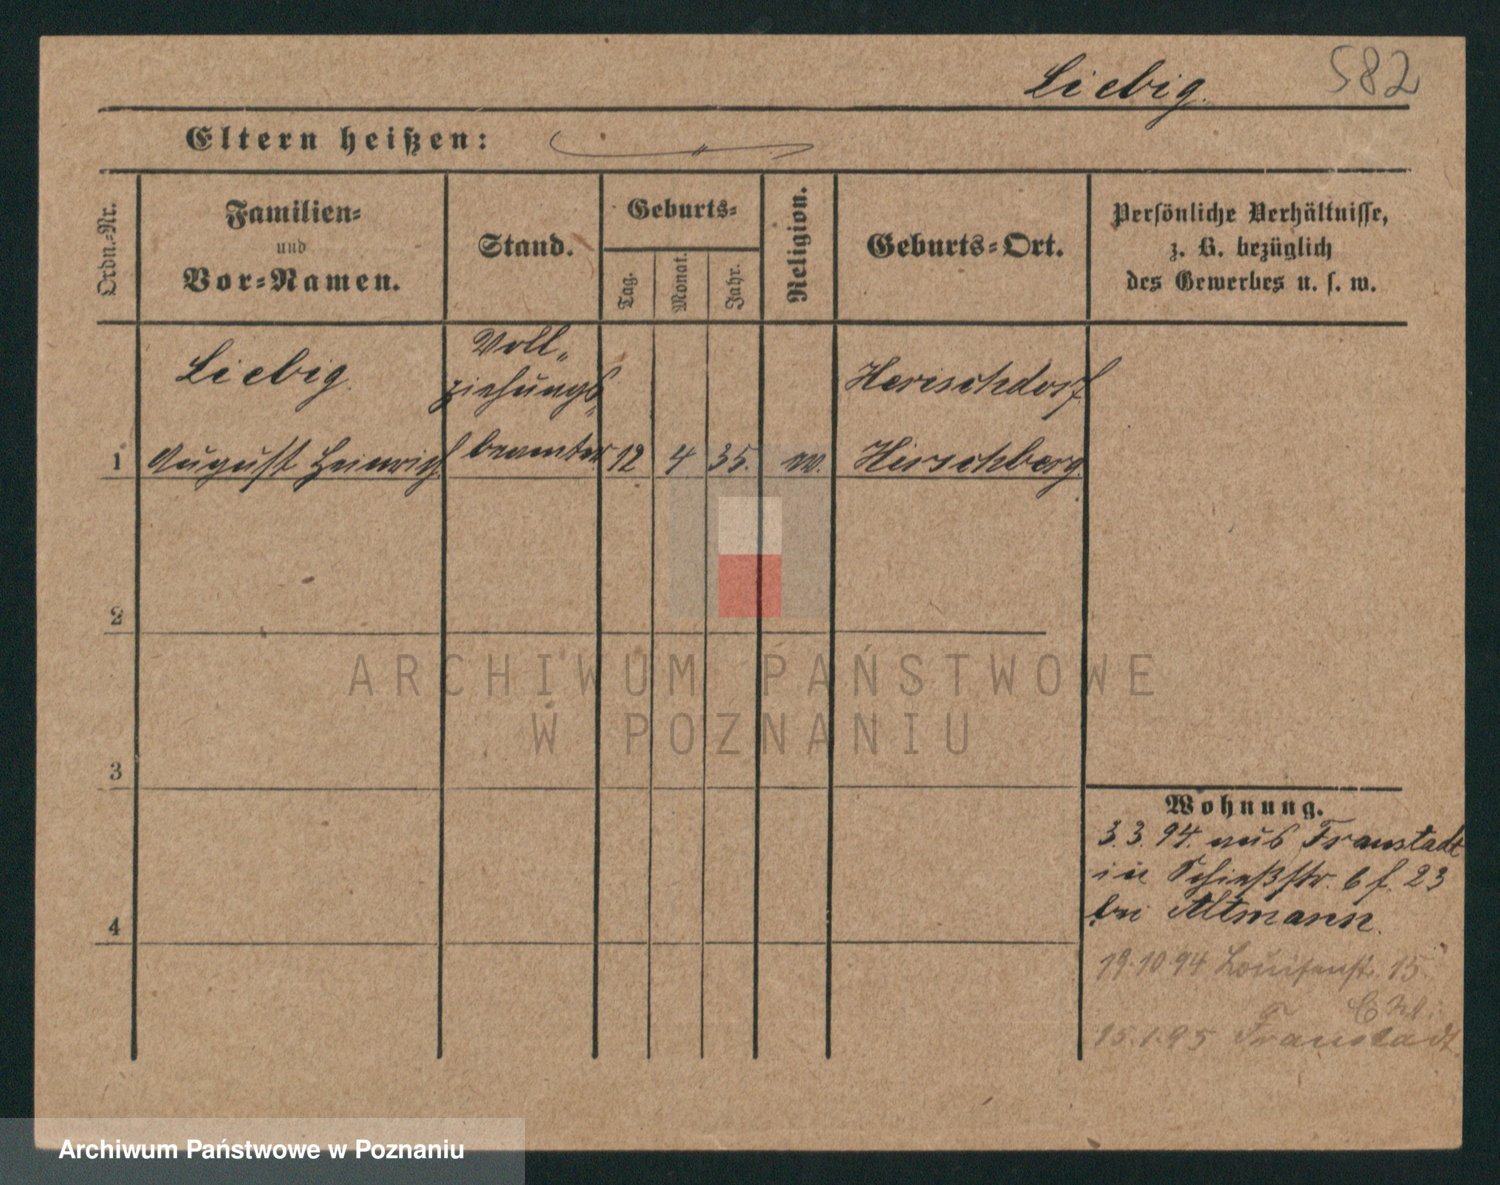 Liebig.
582
Eltern heißen:
Ordn.-Nr.
Familien-
und
Vor-Namen.
Stand.
Geburts-
Tag.
Monat.
Jahr.
Religion.
Geburts-Ort.
Persönliche Verhältnisse,
z. B. bezüglich
des Gewerbes u. s. w.
Liebig.
Voll-
ziehungs-
Herischdorf
1
August Heinrich
beamter
12
4
35.
Hirschberg.
2
3
4
Wohnung.
3.3.94. aus Fraustadt
in Schießstr. 6 f. 23
bei Altmann.
19.10.94 Louisenstr. 15
15.1.95 Fraustadt
ARCHIWUM PAŃSTWOWE
W POZNANIU
Archiwum Państwowe w Poznaniu